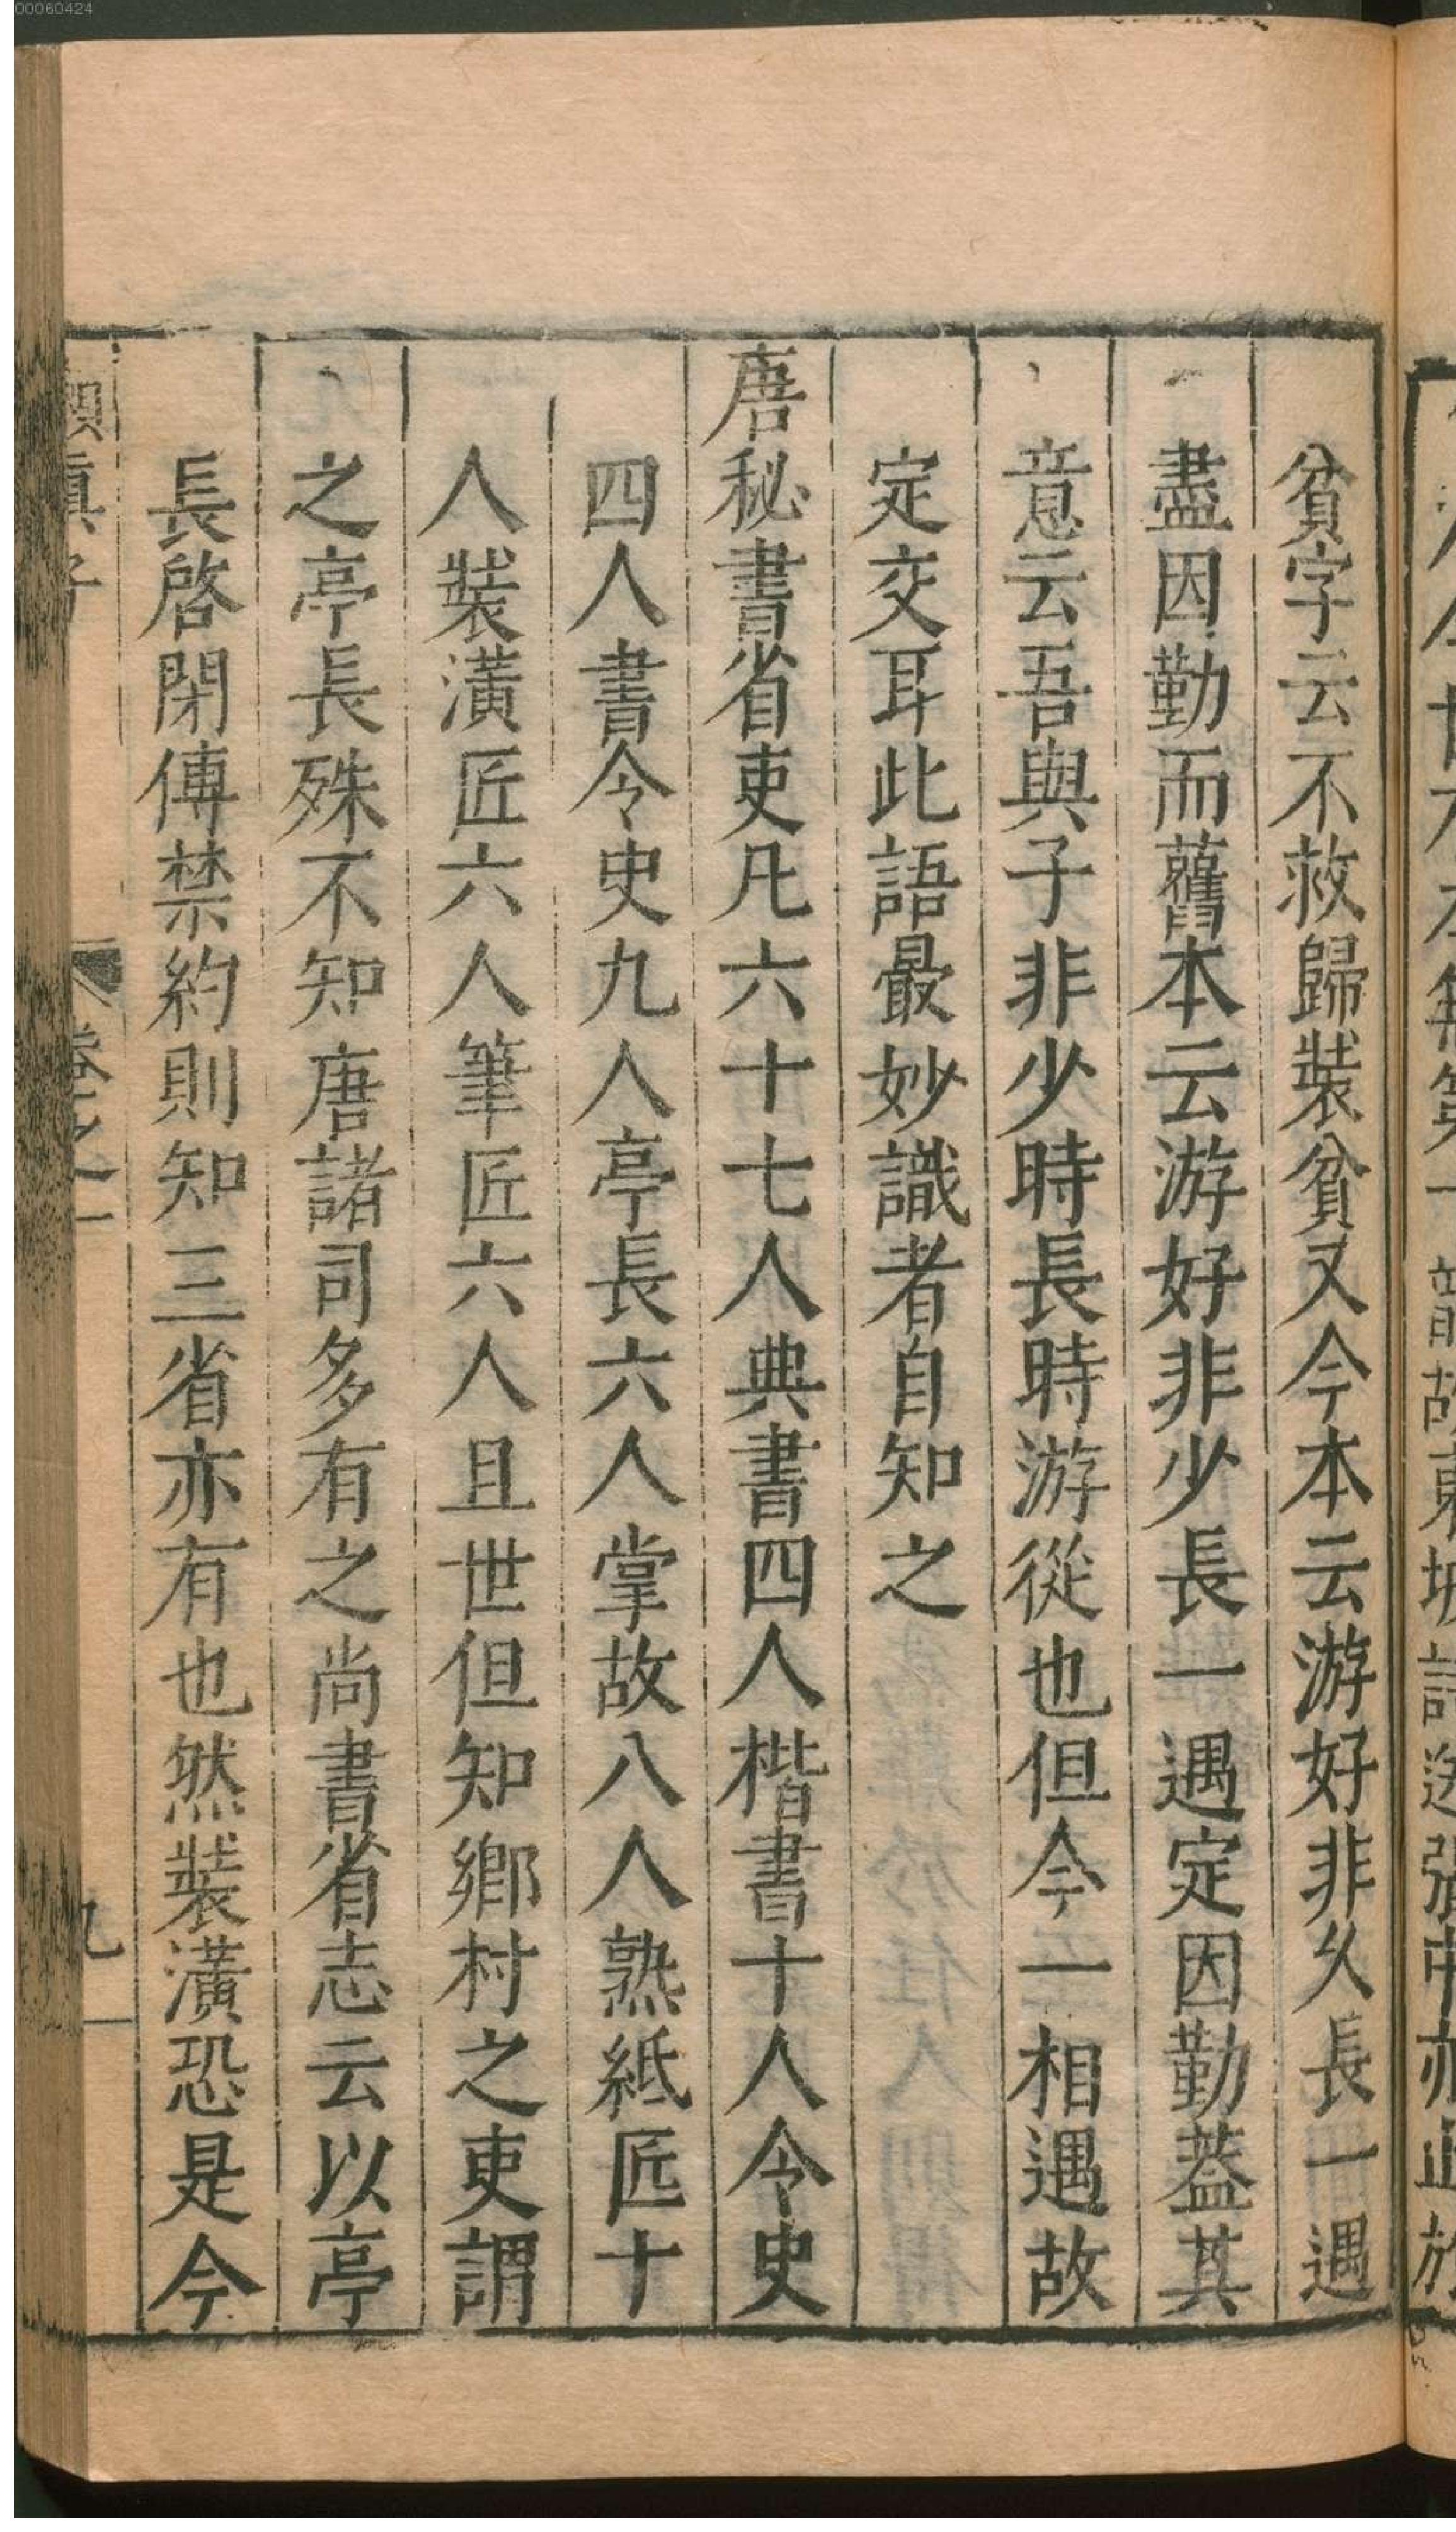 00060424
貧字云不救歸裝貧又今本云游好非久長一遇
盡因勤而舊本云游好非少長一遇定因勤蓋其
意云吾與子非少時長時游從也但今一相遇故
定交耳此語最妙識者自知之
唐秘書省吏凡六十七人典書四人楷書十人令史
四人書令史九人亭長六人掌故八人熟紙匠十
人裝潢匠六人筆匠六人且世但知鄉村之吏謂
之亭長殊不知唐諸司多有之尚書省志云以亭
長啓閉傳禁約則知三省亦有也然裝潢恐是今